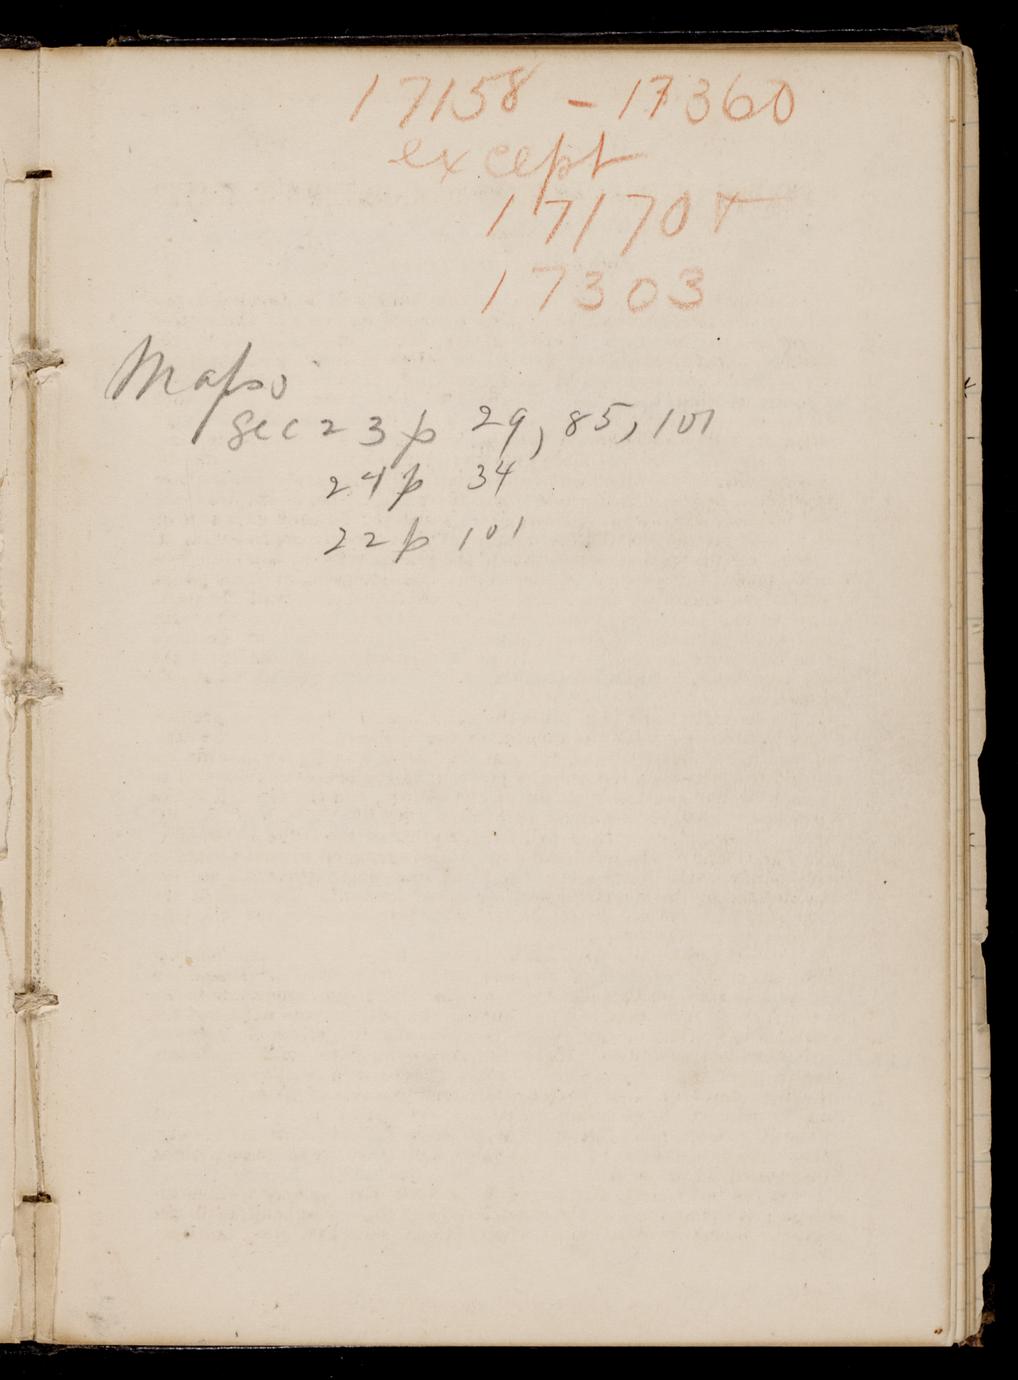 17158 - 17360
except
17170 +
17303
Maps
Sec 23 p 29, 85, 101
24 p 34
22 p 101